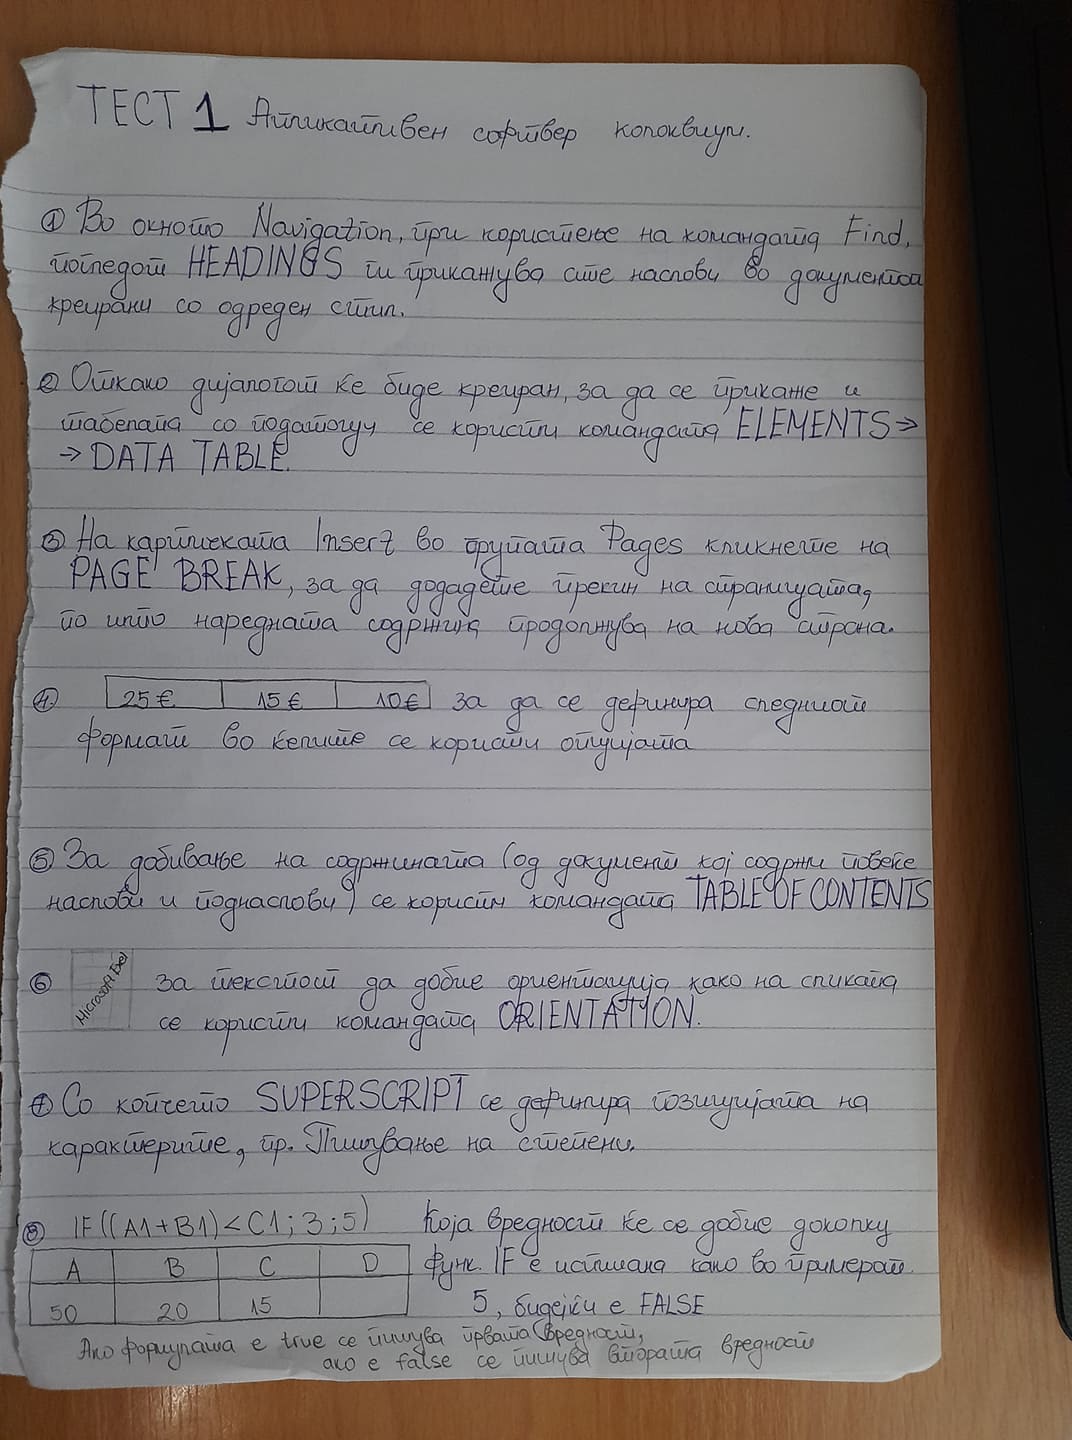 ТЕСТ 1 Апликативен софтвер колоквиум.
① Во окното Navigation, при користење на командата Find,
погледот HEADINGS ги прикажува сите наслови во документот
креирани со одреден стил.
② Откако дијалогот ќе биде креиран, за да се прикаже и
табелата со податоци се користи командата ELEMENTS →
→ DATA TABLE.
③ На картичката Insert во групата Pages кликнете на
PAGE BREAK, за да додадете прекин на страницата,
по што наредната содржина продолжува на нова страна.
④ 25€ 15€ 10€ за да се дефинира следниот
формат во ќелиите се користи опцијата
⑤ За добивање на содржината (од документ кој содржи повеќе
наслови и поднаслови) се користи командата TABLE OF CONTENTS
⑥ Microsoft Exel за текстот да добие ориентација како на сликата
се користи командата ORIENTATION.
⑦ Со копчето SUPERSCRIPT се дефинира позицијата на
карактерите, пр. Пишување на степени.
⑧ IF((A1+B1)<C1;3;5) Која вредност ќе се добие доколку
A B C D функ. IF е испишана како во примерот.
50 20 15 5, бидејќи е FALSE
Ако формулата е true се пишува првата вредност,
ако е false се пишува втората вредност